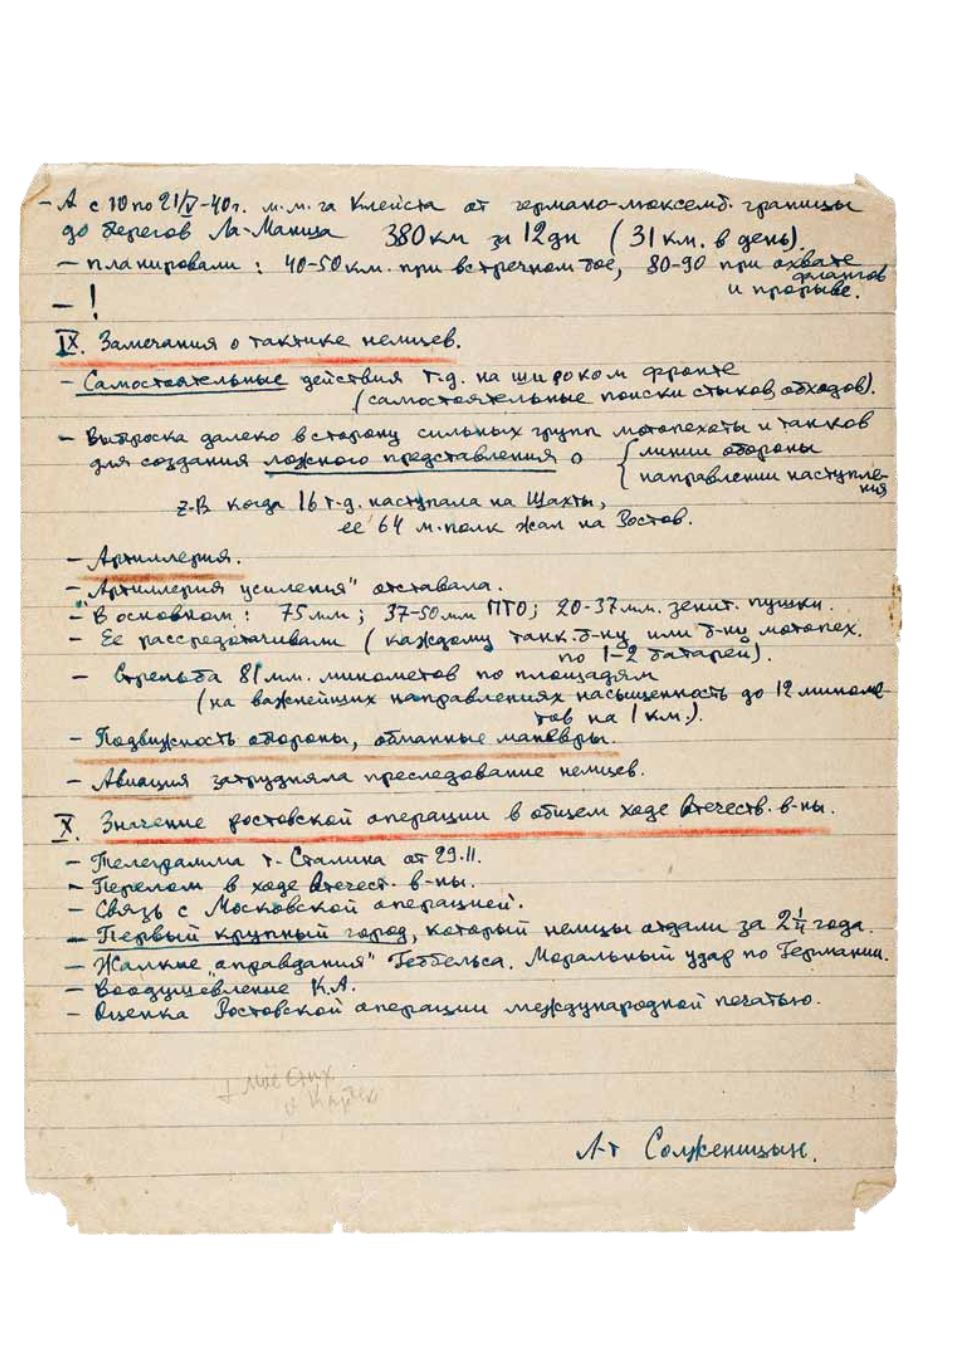 - А с 10 по 21/V-40г. м.м. га Клейста от германо-люксемб. границы
до берегов Ла-Манша 380 км за 12 дн (31 км. в день).
- планировали: 40-50 км. при встречном бое, 80-90 при охвате
флангов
и прорыве.
- !
IX. Замечания о тактике немцев.
- Самостоятельные действия т.д. на широком фронте
(самостоятельные поиски стыков, обходов).
- Выброска далеко в сторону сильных групп мотопехоты и танков
для создания ложного представления о { линии обороны
направлении наступле-
ния
z.B. когда 16 т.д. наступала на Шахты,
ее 64 м.полк жал на Ростов.
- Артиллерия.
- "Артиллерия усиления" отставала.
- В основном: 75 мм; 37-50 мм ПТО; 20-37 мм. зенит. пушки.
- Ее рассредотачивали (каждому танк. б-ну или б-ну мотопех.
по 1-2 батареи).
- Стрельба 81 мм. минометов по площадям
(на важнейших направлениях насыщенность до 12 миноме-
тов на 1 км.).
- Подвижность обороны, обманные маневры.
- Авиация затрудняла преследование немцев.
X. Значение ростовской операции в общем ходе Отечеств. в-ны.
- Телеграмма т. Сталина от 29.11.
- Перелом в ходе Отечест. в-ны.
- Связь с Московской операцией.
- Первый крупный город, который немцы отдали за 2 1/4 года.
- Жалкие "оправдания" Геббельса. Моральный удар по Германии.
- Воодушевление К.А.
- Оценка Ростовской операции международной печатью.
Л-т Солженицын.